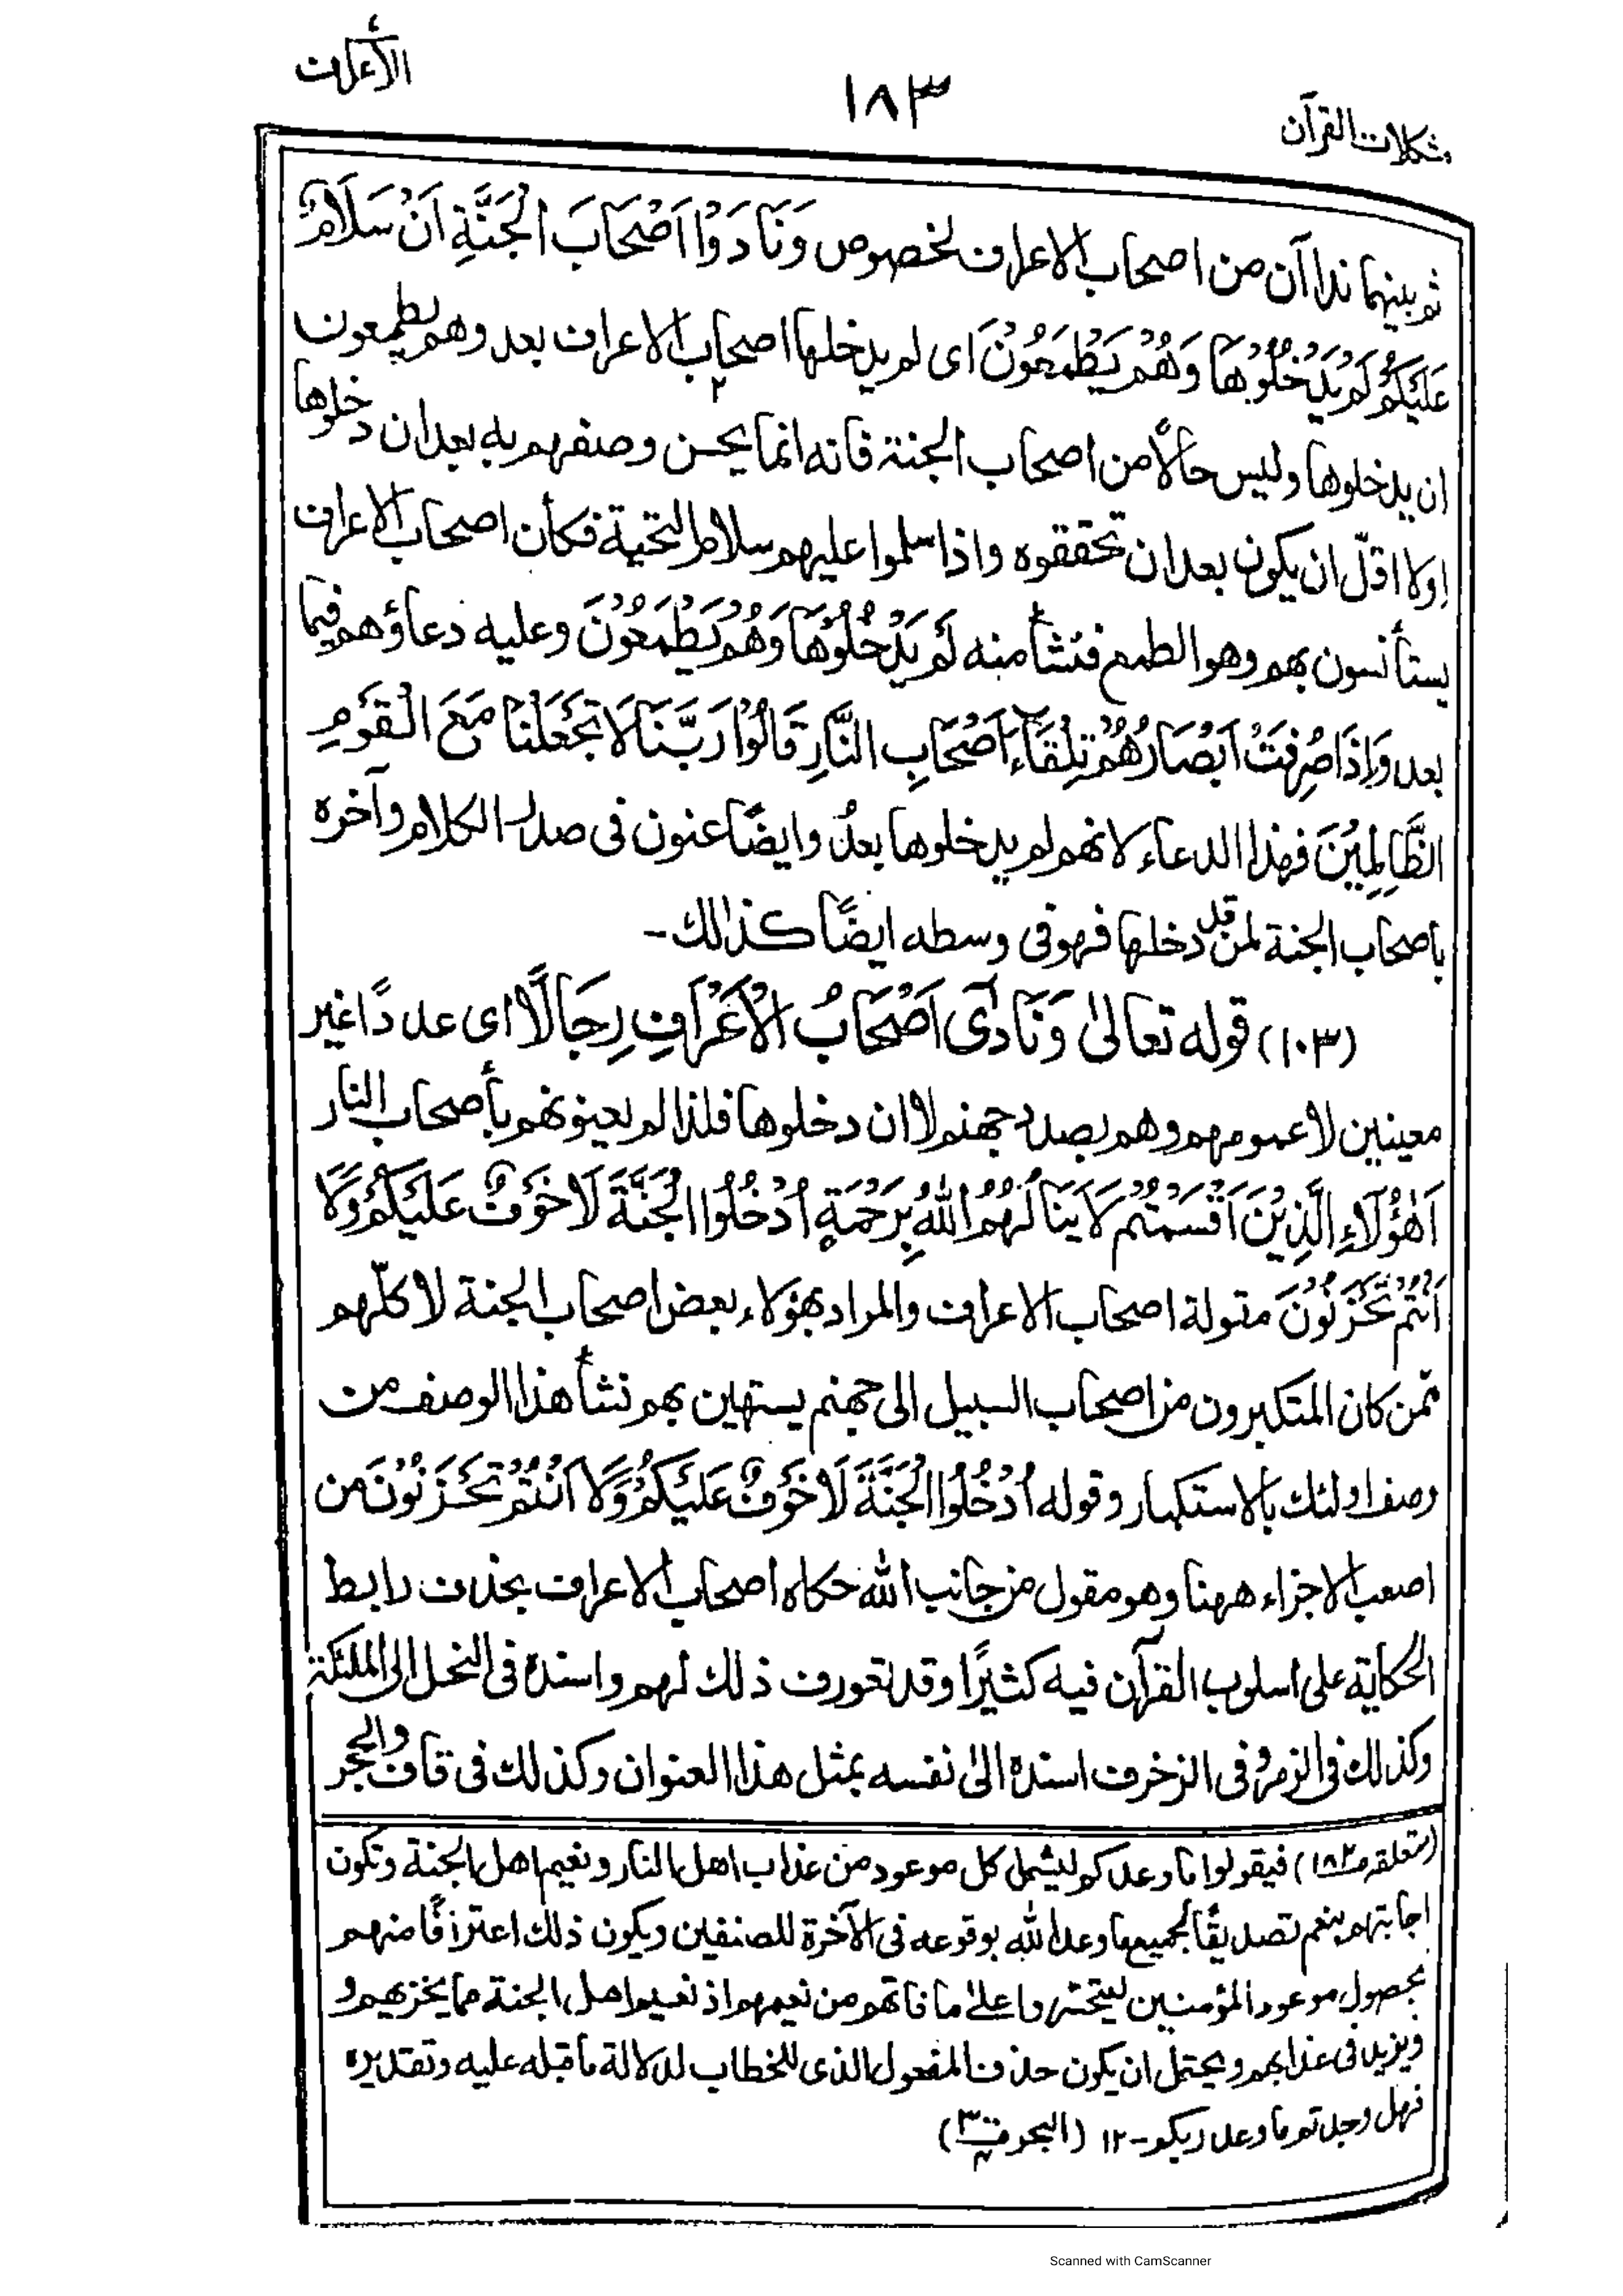 مشكلات القرآن
١٨٣
الأعراف
ثم بينهما نداآن من اصحاب الاعراف لخصوص وَنَادَوْا اَصْحَابَ الْجَنَّةِ اَنْ سَلَامٌ
عَلَيْكُمْ لَمْ يَدْخُلُوْهَا وَهُمْ يَطْمَعُوْنَ اى لم يدخلها اصحاب الاعراف بعد وهم يطمعون
ان يدخلوها وليس حالًا من اصحاب الجنة فانه انما يحسن وصفهم به بعد ان دخلوها
اولا اقلّ ان يكون بعد ان تحققوه واذا سلموا عليهم سلام التحية فكأن اصحاب الاعراف
يستأنسون بهم وهو الطمع فنشأ منه لَمْ يَدْخُلُوْهَا وَهُمْ يَطْمَعُوْنَ وعليه دعاؤهم فيما
بعد وَاِذَا صُرِفَتْ اَبْصَارُهُمْ تِلْقَاءَ اَصْحَابِ النَّارِ قَالُوْا رَبَّنَا لَا تَجْعَلْنَا مَعَ الْقَوْمِ
الظَّالِمِيْنَ فهذا الدعاء لانهم لم يدخلوها بعدُ وايضًا عنون فى صدر الكلام وآخره
باصحاب الجنة لمن قد دخلها فهو فى وسطه ايضًا كذالك-
(١٠٣) قوله تعالىٰ وَنَادٰى اَصْحَابُ الْاَعْرَافِ رِجَالًا اى عددًا غير
معينين لا عمومهم وهم بصدد جهنم لا ان دخلوها فلذا لم يعينونهم بأصحاب النار
اَهٰؤُلَاءِ الَّذِيْنَ اَقْسَمْتُمْ لَا يَنَالُهُمُ اللّٰهُ بِرَحْمَةٍ اُدْخُلُوا الْجَنَّةَ لَا خَوْفٌ عَلَيْكُمْ وَلَا
اَنْتُمْ تَحْزَنُوْنَ مقولة اصحاب الاعراف والمراد بهؤلاء بعض اصحاب الجنة لا كلّهم
ممن كان المتكبرون من اصحاب السبيل الى جهنم يستهين بهم نشأ هذا الوصف من
وصف اولئك بالاستكبار وقوله اُدْخُلُوا الْجَنَّةَ لَا خَوْفٌ عَلَيْكُمْ وَلَا اَنْتُمْ تَحْزَنُوْنَ من
اصعب الاجزاء ههنا وهو مقول من جانب الله حكاه اصحاب الاعراف بحذف رابط
الحكاية على اسلوب القرآن فيه كثيرًا وقد تعورف ذلك لهم واسنده فى النحل الى الملئكة
وكذالك فى الزمر وفى الزخرف اسنده الىٰ نفسه بمثل هذا العنوان وكذلك فى قاف والحجر
(متعلقه ص١٨٢) فيقولوا ما وعدكم ليشمل كل موعود من عذاب اهل النار ونعيم اهل الجنة وتكون
اجابتهم بنعم تصديقًا لجميع ما وعد الله بوقوعه فى الآخرة للصنفين ويكون ذلك اعترافًا منهم
بحصول موعود المؤمنين ليتحسّروا علىٰ ما فاتهم من نعيمهم اذ نعيم اهل الجنة مما يخزيهم و
ويزيد فى عذابهم ويحتمل ان يكون حذف المفعول الذى للخطاب لدلالة ما قبله عليه وتقديره
فهل وجدتم ما وعد ربكم-١٢ (البحر